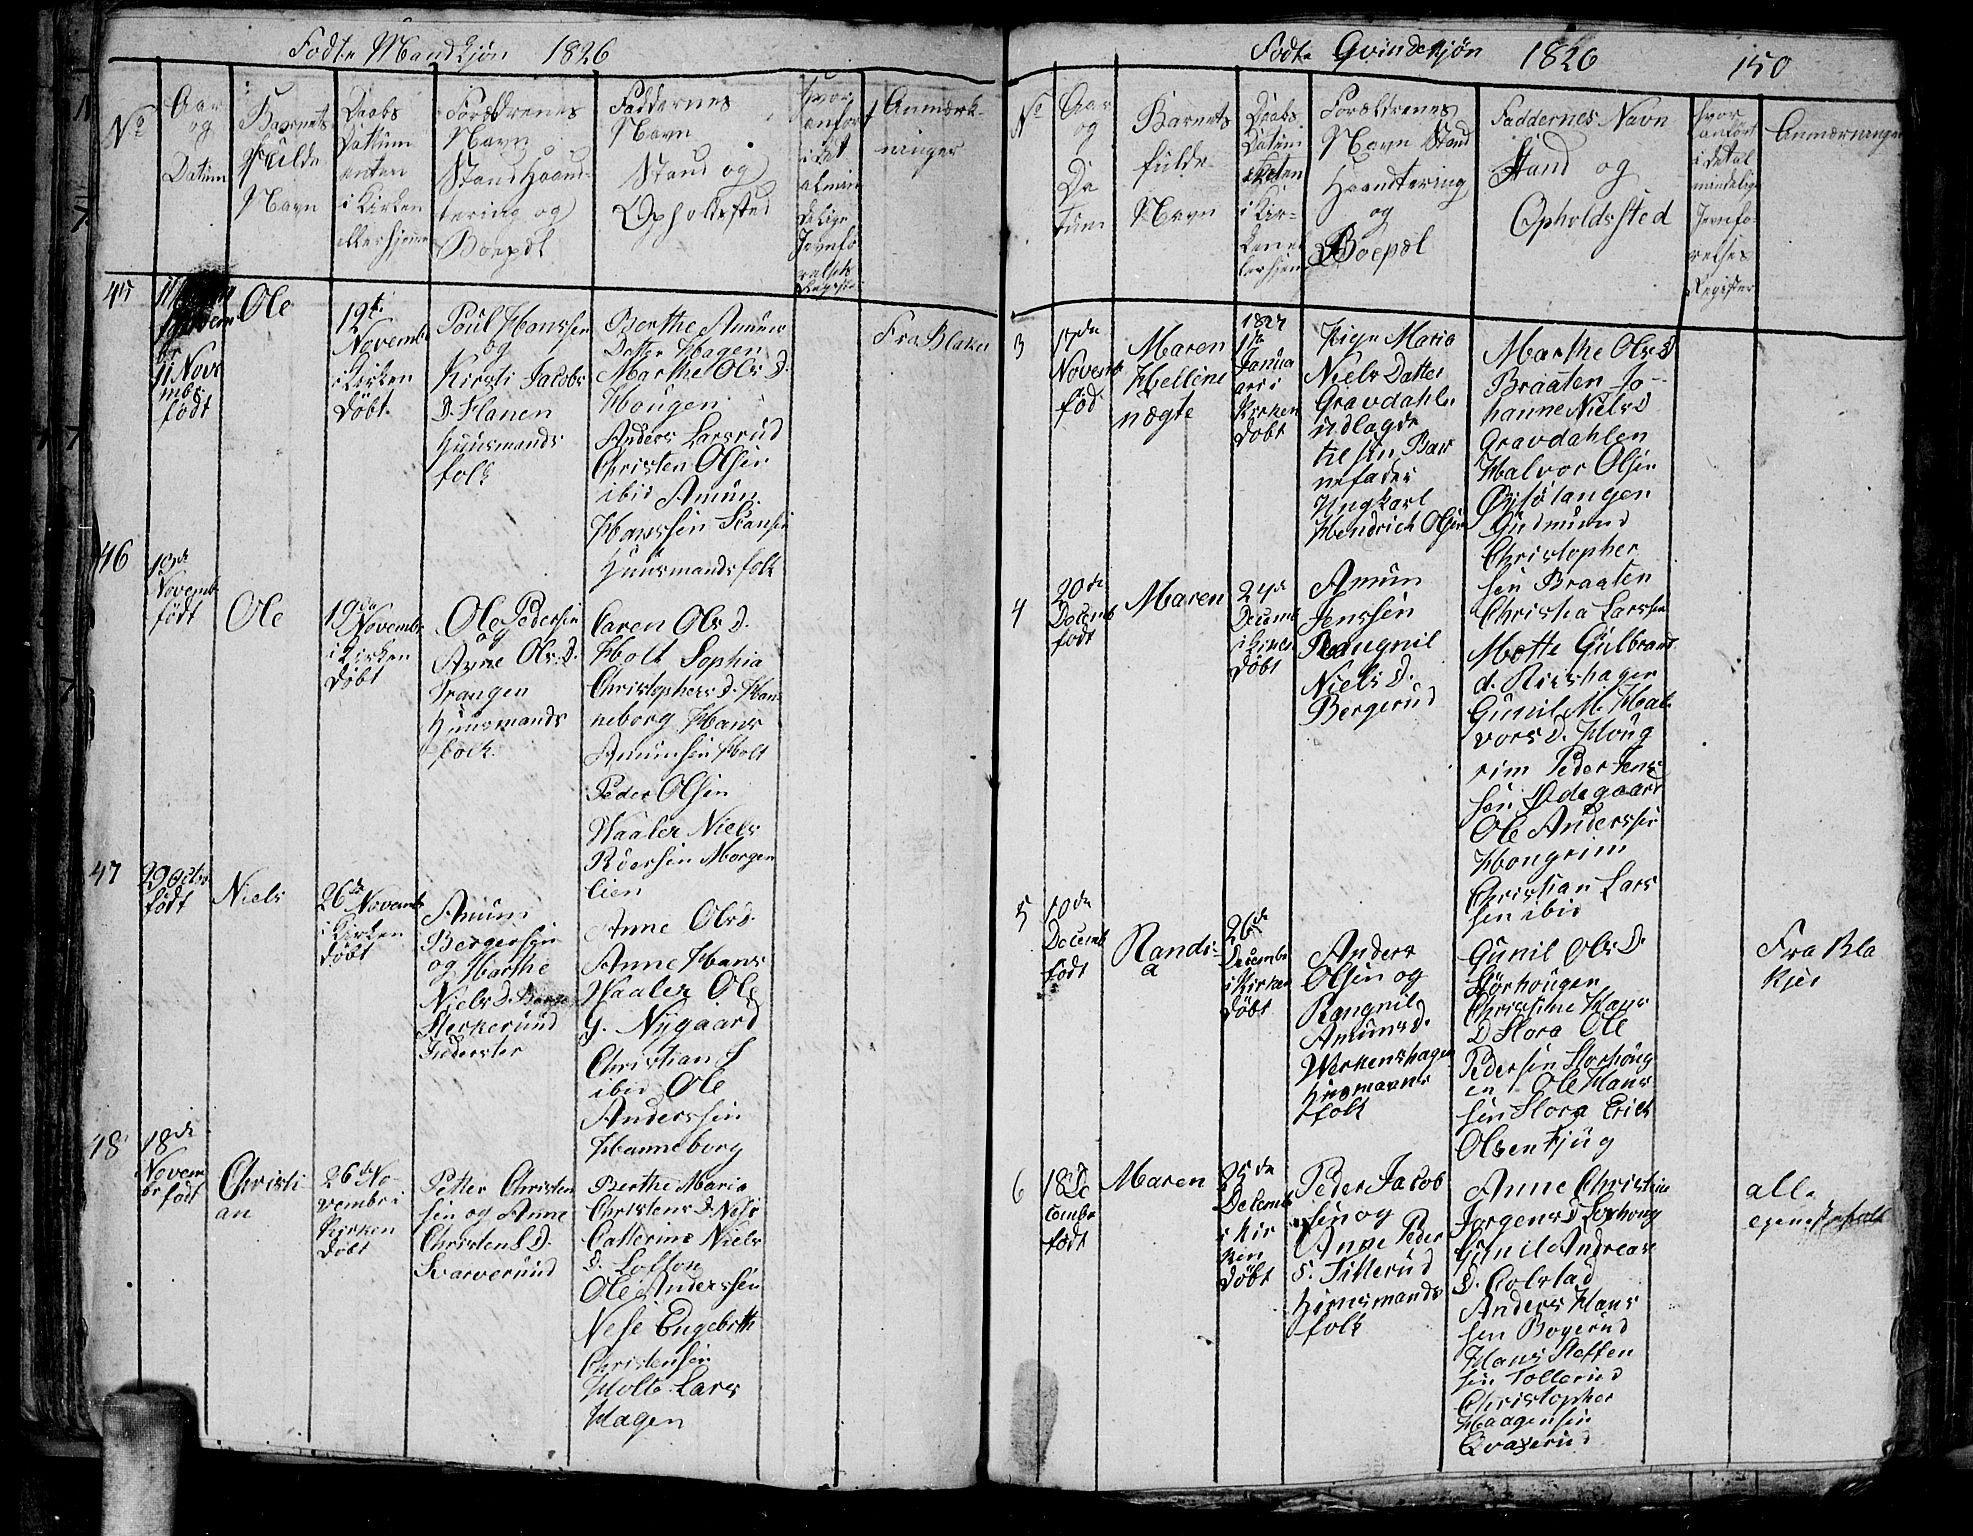 Födte Mandkjøn 1826
No
Aar
og
Datum
Barnets
Fulde
Navn
Daabs
Datum
enten
i Kirken
Forældrenes
Navn
Stand Haand-
tering og
Boepæl
Faddernes
Navn
Stand og
Opholdssted
Hvor
anført
i det
almin
delige
Jevnfø
relses
Anmærk-
ninger
45
11 Nove
mbr
født
Ole
19de
Novemb
i Kirken
døbt
Poul Hanssen
og
Kirsti Jacobs
D. Hanen
Huusmands
folk
Berthe Amun
Datter Hagen
Marthe Ols D.
Hougen
Anders Larsrud
Christen Olsen
ibid Amun
Hanssen
Huusmandsfolk
Fra Blaker
46
Novemb
født
Ole
19de
Novemb
i Kirken
døbt
Ole Pedersen
og
Anne Ols D.
Trangen
Huusmands
folk
Caren Ols D.
Holt Sophia
Christophers D. Han
neborg Hans
Amunsen Holt
Peder Olsen
Haaler Niels
Morgen
lien
47
29 Octbr
født
Niels
26de Novemb
i Kirken
døbt
Amun
Bergersen
og Marthe
Niels D.
Inderster
Anne Ols D.
Anne Hans
Haaler Ole
G. Nygaard
Christian S
ibid Ole
Anderssen
Hanneborg
48
18de
Novem
br født
Christi
an
26de No-
vembr i
Kirken
døbt
Petter Christen
sen og Anne
Christens D.
Svarverud
Berthe Maria
Christens D. Nese
Catterine Niels
D. Lofton
Ole Anderssen
Nese Engebrett
Christensen
Holte Lars
Hagen
Födte Qvindekjøn 1826
150
No
Aar
og
Da
tum
Barnets
fulde
Navn
Daabs
Datum
i Kir-
Forældrenes
Navn Stand
Haandtering
og
Boepæl
Faddernes Navn
Stand og
Opholdssted
Hvor
anført
i det al
mindelige
Jevnfø-
relses
Register
Anmærninger
3
17de
Novemb
fød
Maren
Helline
uægte
1827
1te
Janua
ari i
Kirken
døbt
Pige Maria
Niels Datter
Gravdahlen
udlagde
til sin Bar
nefader
Ungkarl
Hendrich Olsen
Marthe Ols D
Braaten Jo-
hanne Niels D
Gravdahlen
Halvor Olsen
Gudmund
Christopher
sen Braaten
4
20de
Decemb
født
Maren
24de
Decemb
i Kirken
døbt
Amun
Jenssen
Rangnil
Niels D.
Bergerud
Christia Larssen
Mette Gulbrand
d. Riishagen
Gunil M. Hal
vors D. Houg
rim Peder Jens
sen Ødegaard
Ole Anderssen
Hougrim
Christian Lars
sen ibid
5
10de
Decemb
født
Randi-
a
26de
Decembr
i Kirken
døbt
Anders
Olsen og
Rangnil
Amuns D.
Werkenshagen
Husmanns
folk
Gunil Ols D.
Storhougen
Christine Hans
D Hora Ole
Pedersen Storhoug
en Ole Hans
sen Hora Erich
Olsen Tjug
Fra Bla
kjer
6
18de De
cembr
født
Maren
25de
Decemb
i Kir
ken
døbt
Peder Jacob
sen og
Anne Peder
S. Titterud
Huusmands
folk
Anne Christine
Jørgens D
Gunil Andreas
D. Kolstad
Anders Hans
sen Bøgerud
Hans Steffen
sen Tollerud
Christopher
Haagensen
Qvaserud
alle
egene